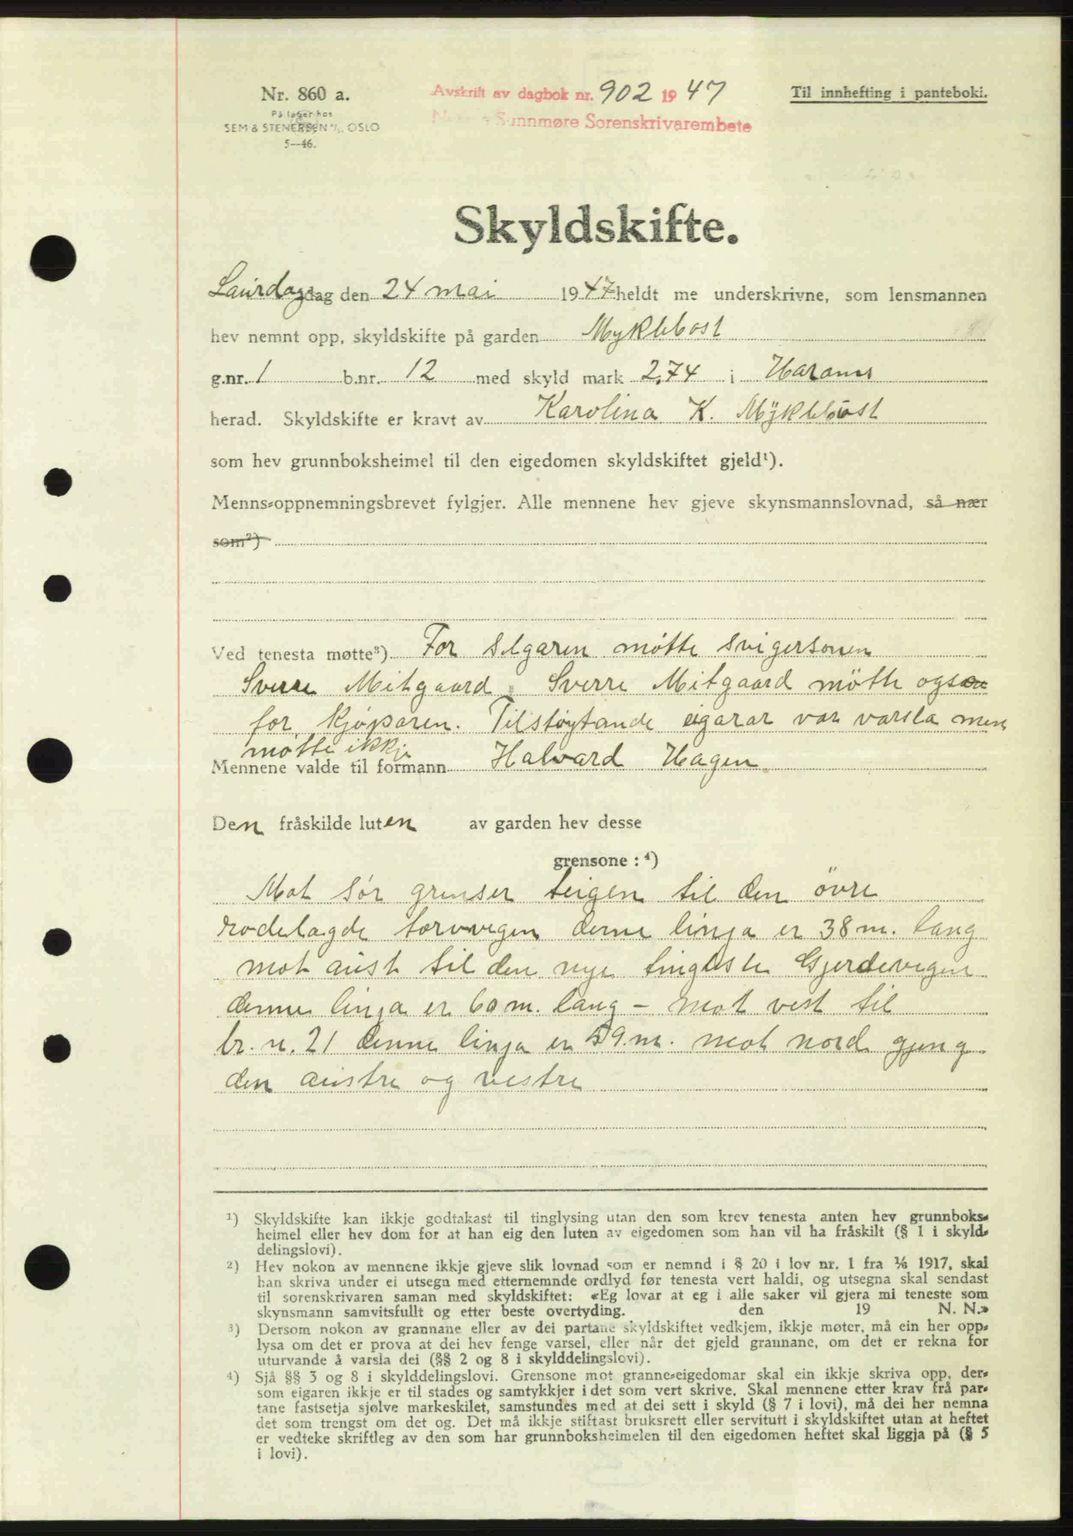 Nr. 860 a.
På lager hos
SEM & STENERSEN A/S, OSLO
5—46.
Avskrift av dagbok nr. 902 1947
Sunnmøre Sorenskrivarembete
Til innhefting i panteboki.
Skyldskifte.
Laurdag dag den 24 mai 1947 heldt me underskrivne, som lensmannen
hev nemnt opp, skyldskifte på garden Myklebost
g.nr. 1 b.nr. 12 med skyld mark 2,74 i Harams
herad. Skyldskifte er kravt av Karolina K. Myklebost
som hev grunnboksheimel til den eigedomen skyldskiftet gjeld¹).
Menns-oppnemningsbrevet fylgjer. Alle mennene hev gjeve skynsmannslovnad, så nær
som²)
Ved tenesta møtte³) For selgaren møtte svigersonen
Sverre Mitgaard. Sverre Mitgaard møtte også
for kjøparen. Tilstøytande eigarar var varsla men
møtte ikkje
Mennene valde til formann Halvard Hagen
Den fråskilde luten av garden hev desse
grensone : ⁴)
Mot sør grenser teigen til den øvre
rodelagde torvvegen denne linja er 38 m. lang
mot aust til den nye tinglyste Gjerdevegen
denne linja er 60 m. lang – mot vest til
br. n. 21 denne linja er 59 m. mot nord gjeng
den austre og vestre
¹) Skyldskifte kan ikkje godtakast til tinglysing utan den som krev tenesta anten hev grunnboks-
heimel eller hev dom for at han eig den luten av eigedomen som han vil ha fråskilt (§ 1 i skyld-
delingslovi).
²) Hev nokon av mennene ikkje gjeve slik lovnad som er nemnd i § 20 i lov nr. 1 fra 1/6 1917, skal
han skriva under ei utsegn med etternemnde ordlyd før tenesta vert haldi, og utsegna skal sendast
til sorenskrivaren saman med skyldskiftet: «Eg lovar at eg i alle saker vil gjera mi teneste som
skynsmann samvitsfullt og etter beste overtyding. den 19 N. N.»
³) Dersom nokon av grannane eller av dei partane skyldskiftet vedkjem, ikkje møter, må ein her opp-
lysa om det er prova at dei hev fenge varsel, eller når det gjeld grannane, om det er rekna for
uturvande å varsla dei (§§ 2 og 8 i skylddelingslovi).
⁴) Sjå §§ 3 og 8 i skylddelingslovi. Grensone mot granne-eigedomar skal ein ikkje skriva opp, der-
som eigaren ikkje er til stades og samtykkjer i det som vert skrive. Skal mennene etter krav frå par-
tane fastsetja sjølve markeskilet, samstundes med at dei sett i skyld (§ 7 i lovi), må dei her nemna
det som trengst om det og. Det må ikkje stiftast bruksrett eller servitutt i skyldskiftet utan at heftet
er vedteke skriftleg av den som har grunnboksheimelen til den eigedomen heftet skal liggja på (§ 5
i lovi).